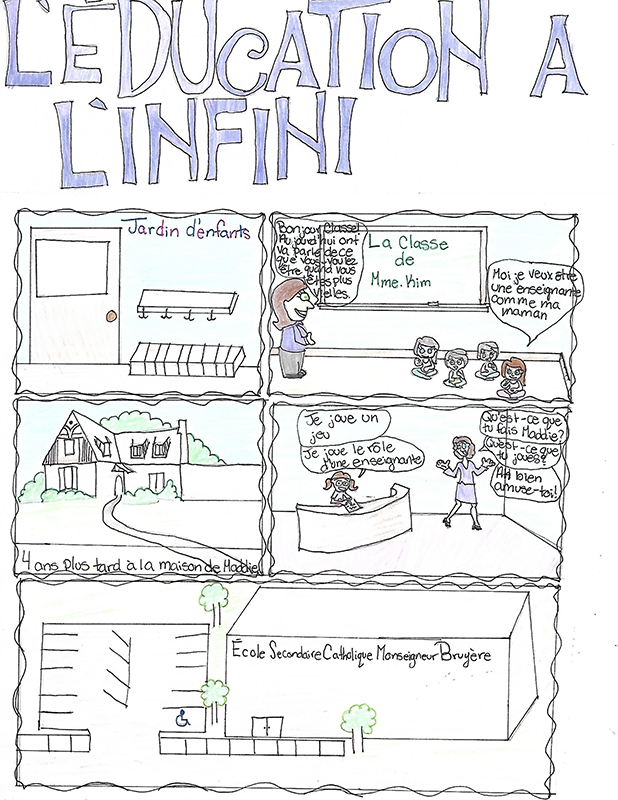 L'ÉDUCATION A
L'INFINI
Jardin d'enfants
Bonjour Classe!
Aujourd'hui ont
va parle de ce
que vous voulez
être quand vous
êtes plus
vielles.
La Classe
de
Mme. Kim
Moi je veux être
une enseignante
comme ma
maman
4 ans plus tard à la maison de Maddie
Je joue un
jeu
Je joue le rôle
d'une enseignante
Qu'est-ce que
tu fais Maddie?
Qu'est-ce que
tu joues?
Ah bien
amuse-toi!
École Secondaire Catholique Monseigneur Bruyère